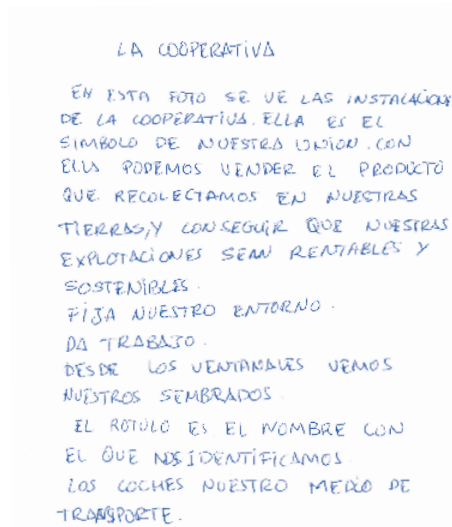 LA COOPERATIVA
EN ESTA FOTO SE VE LAS INSTALACIONES
DE LA COOPERATIVA. ELLA ES EL
SIMBOLO DE NUESTRA UNION. CON
ELLA PODEMOS VENDER EL PRODUCTO
QUE RECOLECTAMOS EN NUESTRAS
TIERRAS, Y CONSEGUIR QUE NUESTRAS
EXPLOTACIONES SEAN RENTABLES Y
SOSTENIBLES.
FIJA NUESTRO ENTORNO.
DA TRABAJO.
DESDE LOS VENTANALES VEMOS
NUESTROS SEMBRADOS.
EL ROTULO ES EL NOMBRE CON
EL QUE NOS IDENTIFICAMOS.
LOS COCHES NUESTRO MEDIO DE
TRANSPORTE.